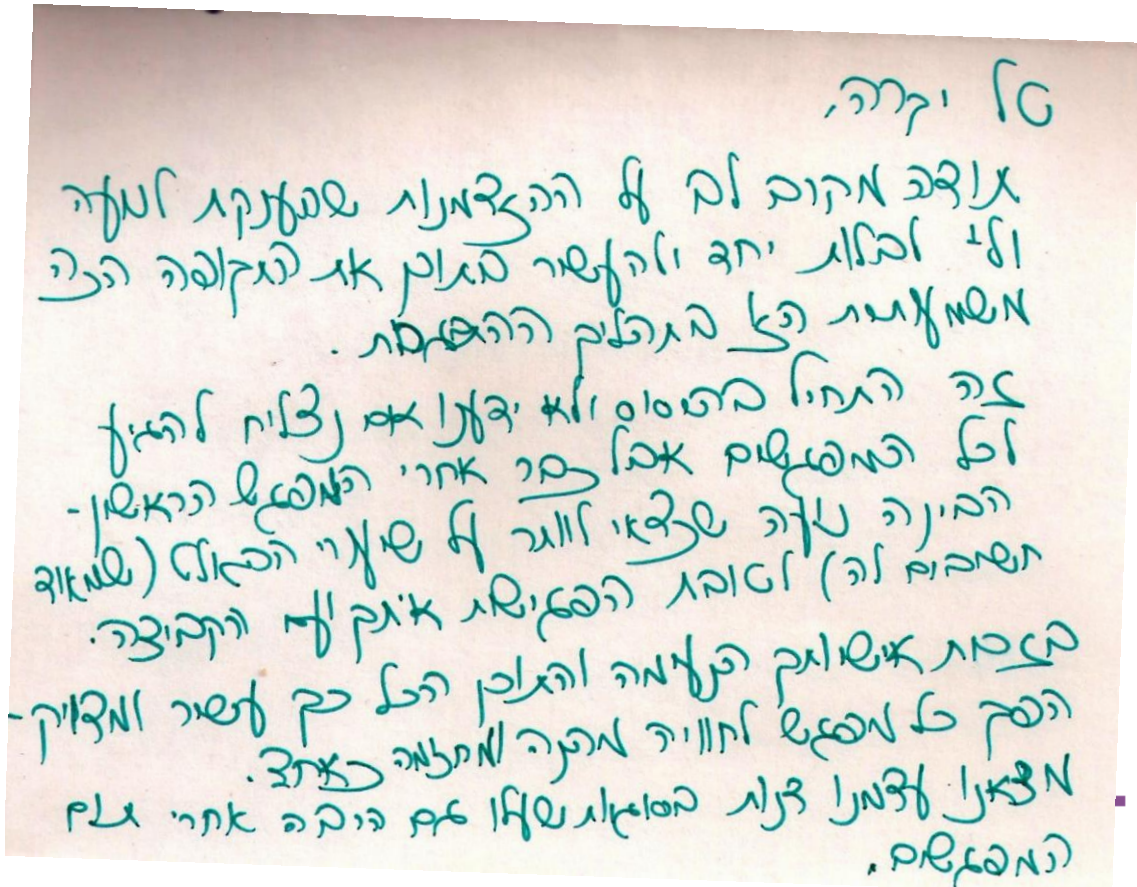 טל יקרה,
תודה מקרב לב על ההזדמנות שהענקת לנועה
ולי לבלות יחד ולהעשיר בתוכן את התקופה הזו
משמעותית הזו בתהליך ההתבגרות.
זה התחיל בהיסוס ולא ידענו אם נצליח להגיע
לכל המפגשים אבל כבר אחרי המפגש הראשון -
הבינה נועה שכדאי לוותר על שיעורי הבאלט (שמאוד
חשובים לה) לטובת הפגישות איתך ועם הקבוצה.
בזכות אישיותך הנעימה והתוכן הכל כך עשיר ומדוייק -
הפך כל מפגש לחוויה מהנה ומחזמה כאחד.
מצאנו עצמנו דנות בסוגיות שעלו גם הרבה אחרי תום
המפגשים.